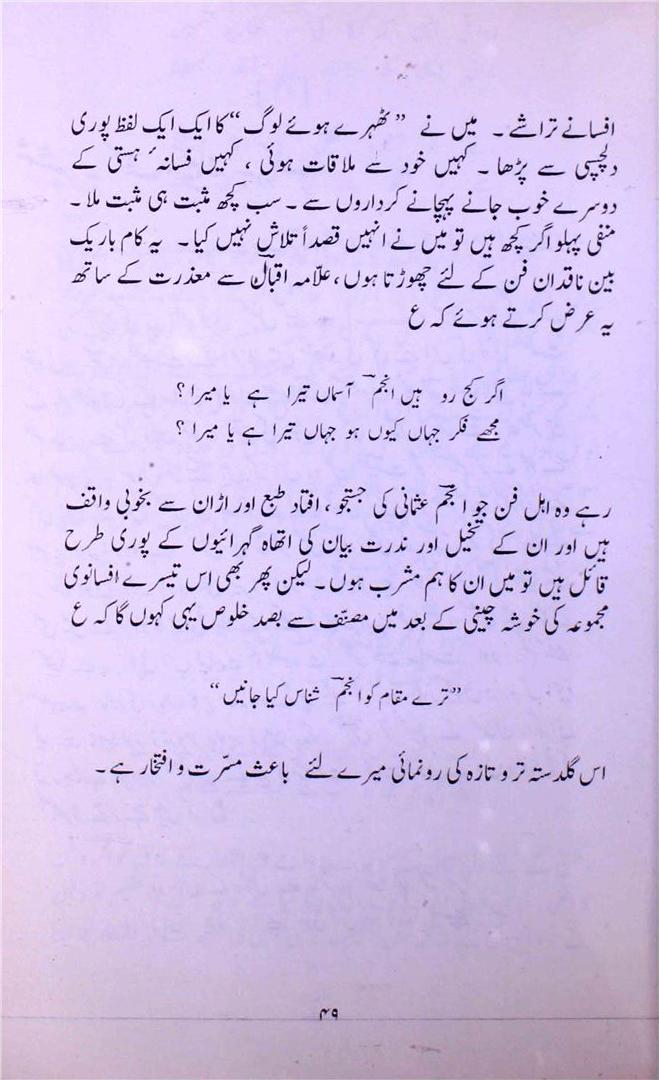 افسانے تراشے۔ میں نے ”ٹھہرے ہوئے لوگ“ کا ایک ایک لفظ پوری
دلچسپی سے پڑھا۔ کہیں خود سے ملاقات ہوئی، کہیں فسانۂ ہستی کے
دوسرے خوب جانے پہچانے کرداروں سے۔ سب کچھ مثبت ہی مثبت ملا۔
منفی پہلو اگر کچھ ہیں تو میں نے انہیں قصداً تلاش نہیں کیا۔ یہ کام باریک
بین ناقدان فن کے لئے چھوڑتا ہوں، علّامہ اقبالؔ سے معذرت کے ساتھ
یہ عرض کرتے ہوئے کہ ع
اگر کج رو ہیں انجمؔ آسماں تیرا ہے یا میرا؟
مجھے فکر جہاں کیوں ہو جہاں تیرا ہے یا میرا؟
رہے وہ اہل فن جو انجمؔ عثمانی کی جستجو، افتاد طبع اور اڑان سے بخوبی واقف
ہیں اور ان کے تخیل اور ندرت بیان کی اتھاہ گہرائیوں کے پوری طرح
قائل ہیں تو میں ان کا ہم مشرب ہوں۔ لیکن پھر بھی اس تیسرے افسانوی
مجموعہ کی خوشہ چینی کے بعد میں مصنّف سے بصد خلوص یہی کہوں گا کہ ع
”ترے مقام کو انجمؔ شناس کیا جانیں“
اس گلدستہ تر و تازہ کی رونمائی میرے لئے باعث مسرّت و افتخار ہے۔
۴۹